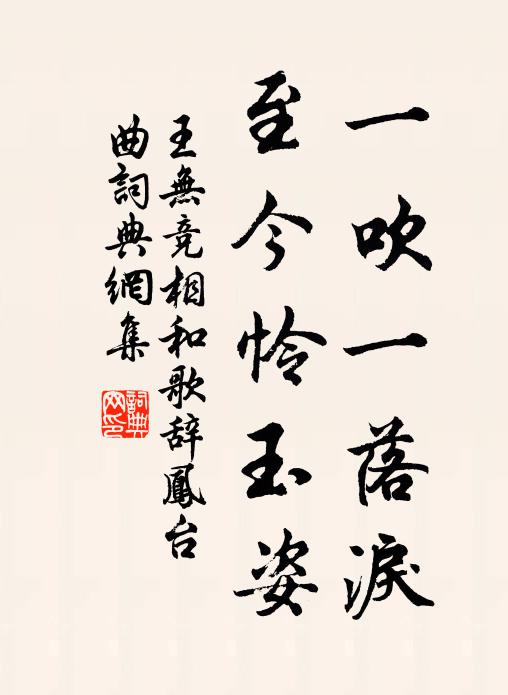 一吹一落淚
至今怜玉姿
王無竞相和歌辞鳳台
曲詞典網集
詞典
网印